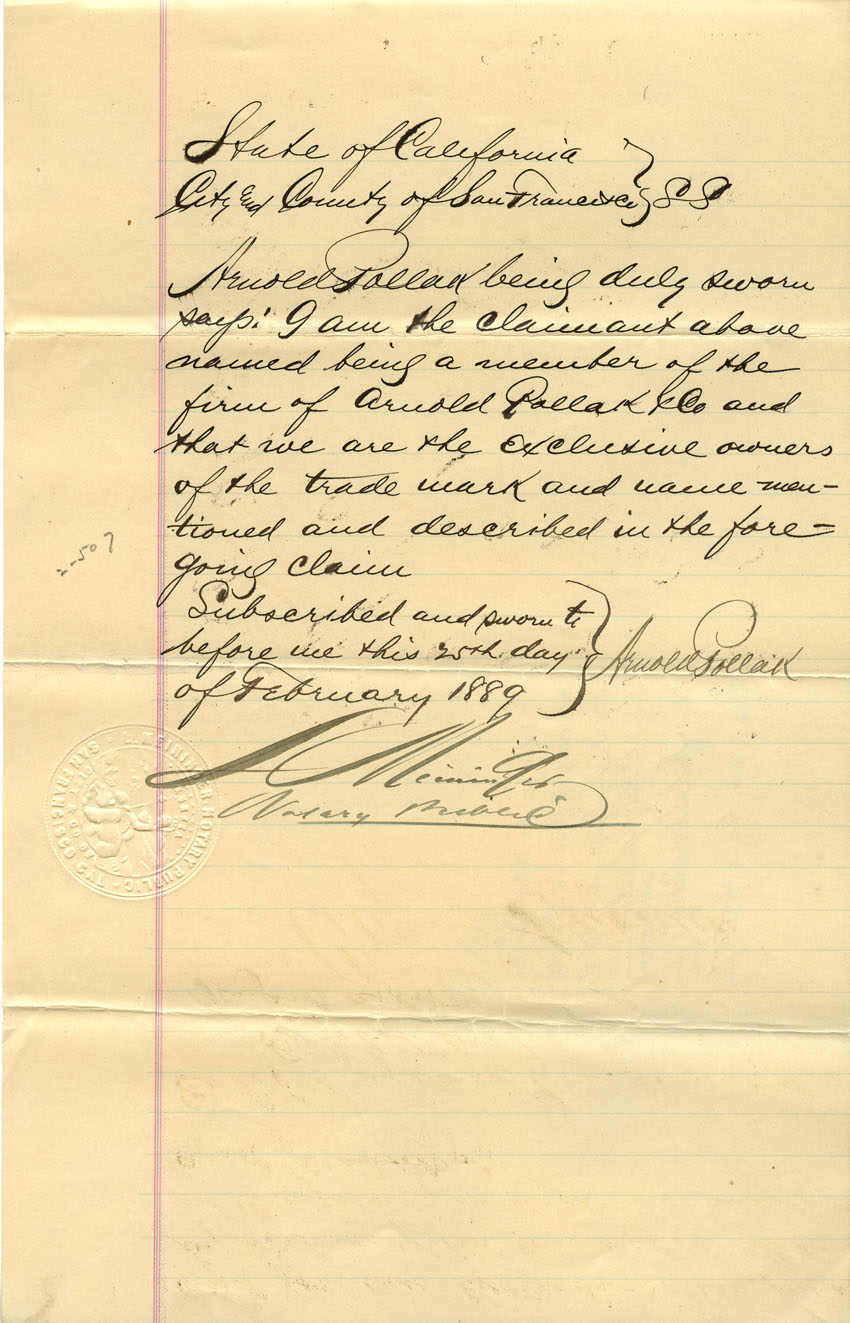 State of California }
City and County of San Francisco } SS
Arnold Pollak being duly sworn
says: I am the claimant above
named being a member of the
firm of Arnold Pollak & Co and
that we are the exclusive owners
of the trade mark and name men-
tioned and described in the fore-
going claim
Subscribed and sworn to
before me this 25th day
of February 1889
Arnold Pollak
L Meininger
Notary Public
L. MEININGER NOTARY PUBLIC
SAN FRANCISCO CAL.
2507